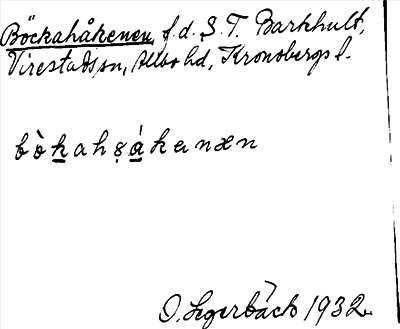 Böckahåkenen, f.d. S. T. Barkhult,
Virestads sn, Allbo hd, Kronobergs l.
bò̀kahṣákenæn
O. Legerbäck 1932.